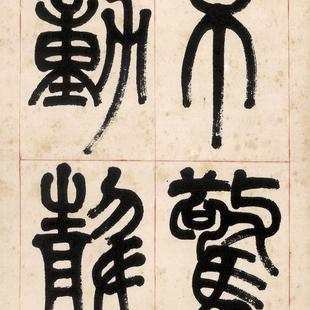 不驚
動靜